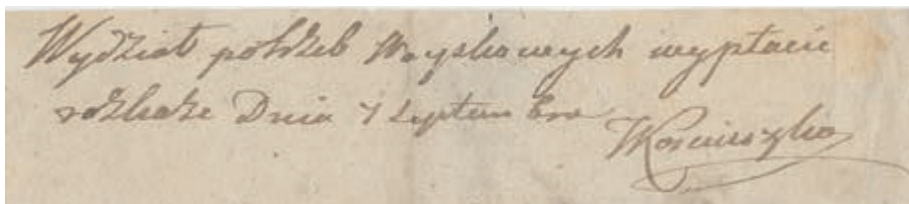 Wydział potrzeb Woyskowych wypłacić
rozkaże Dnia 7 Septembra
TKosciuszko